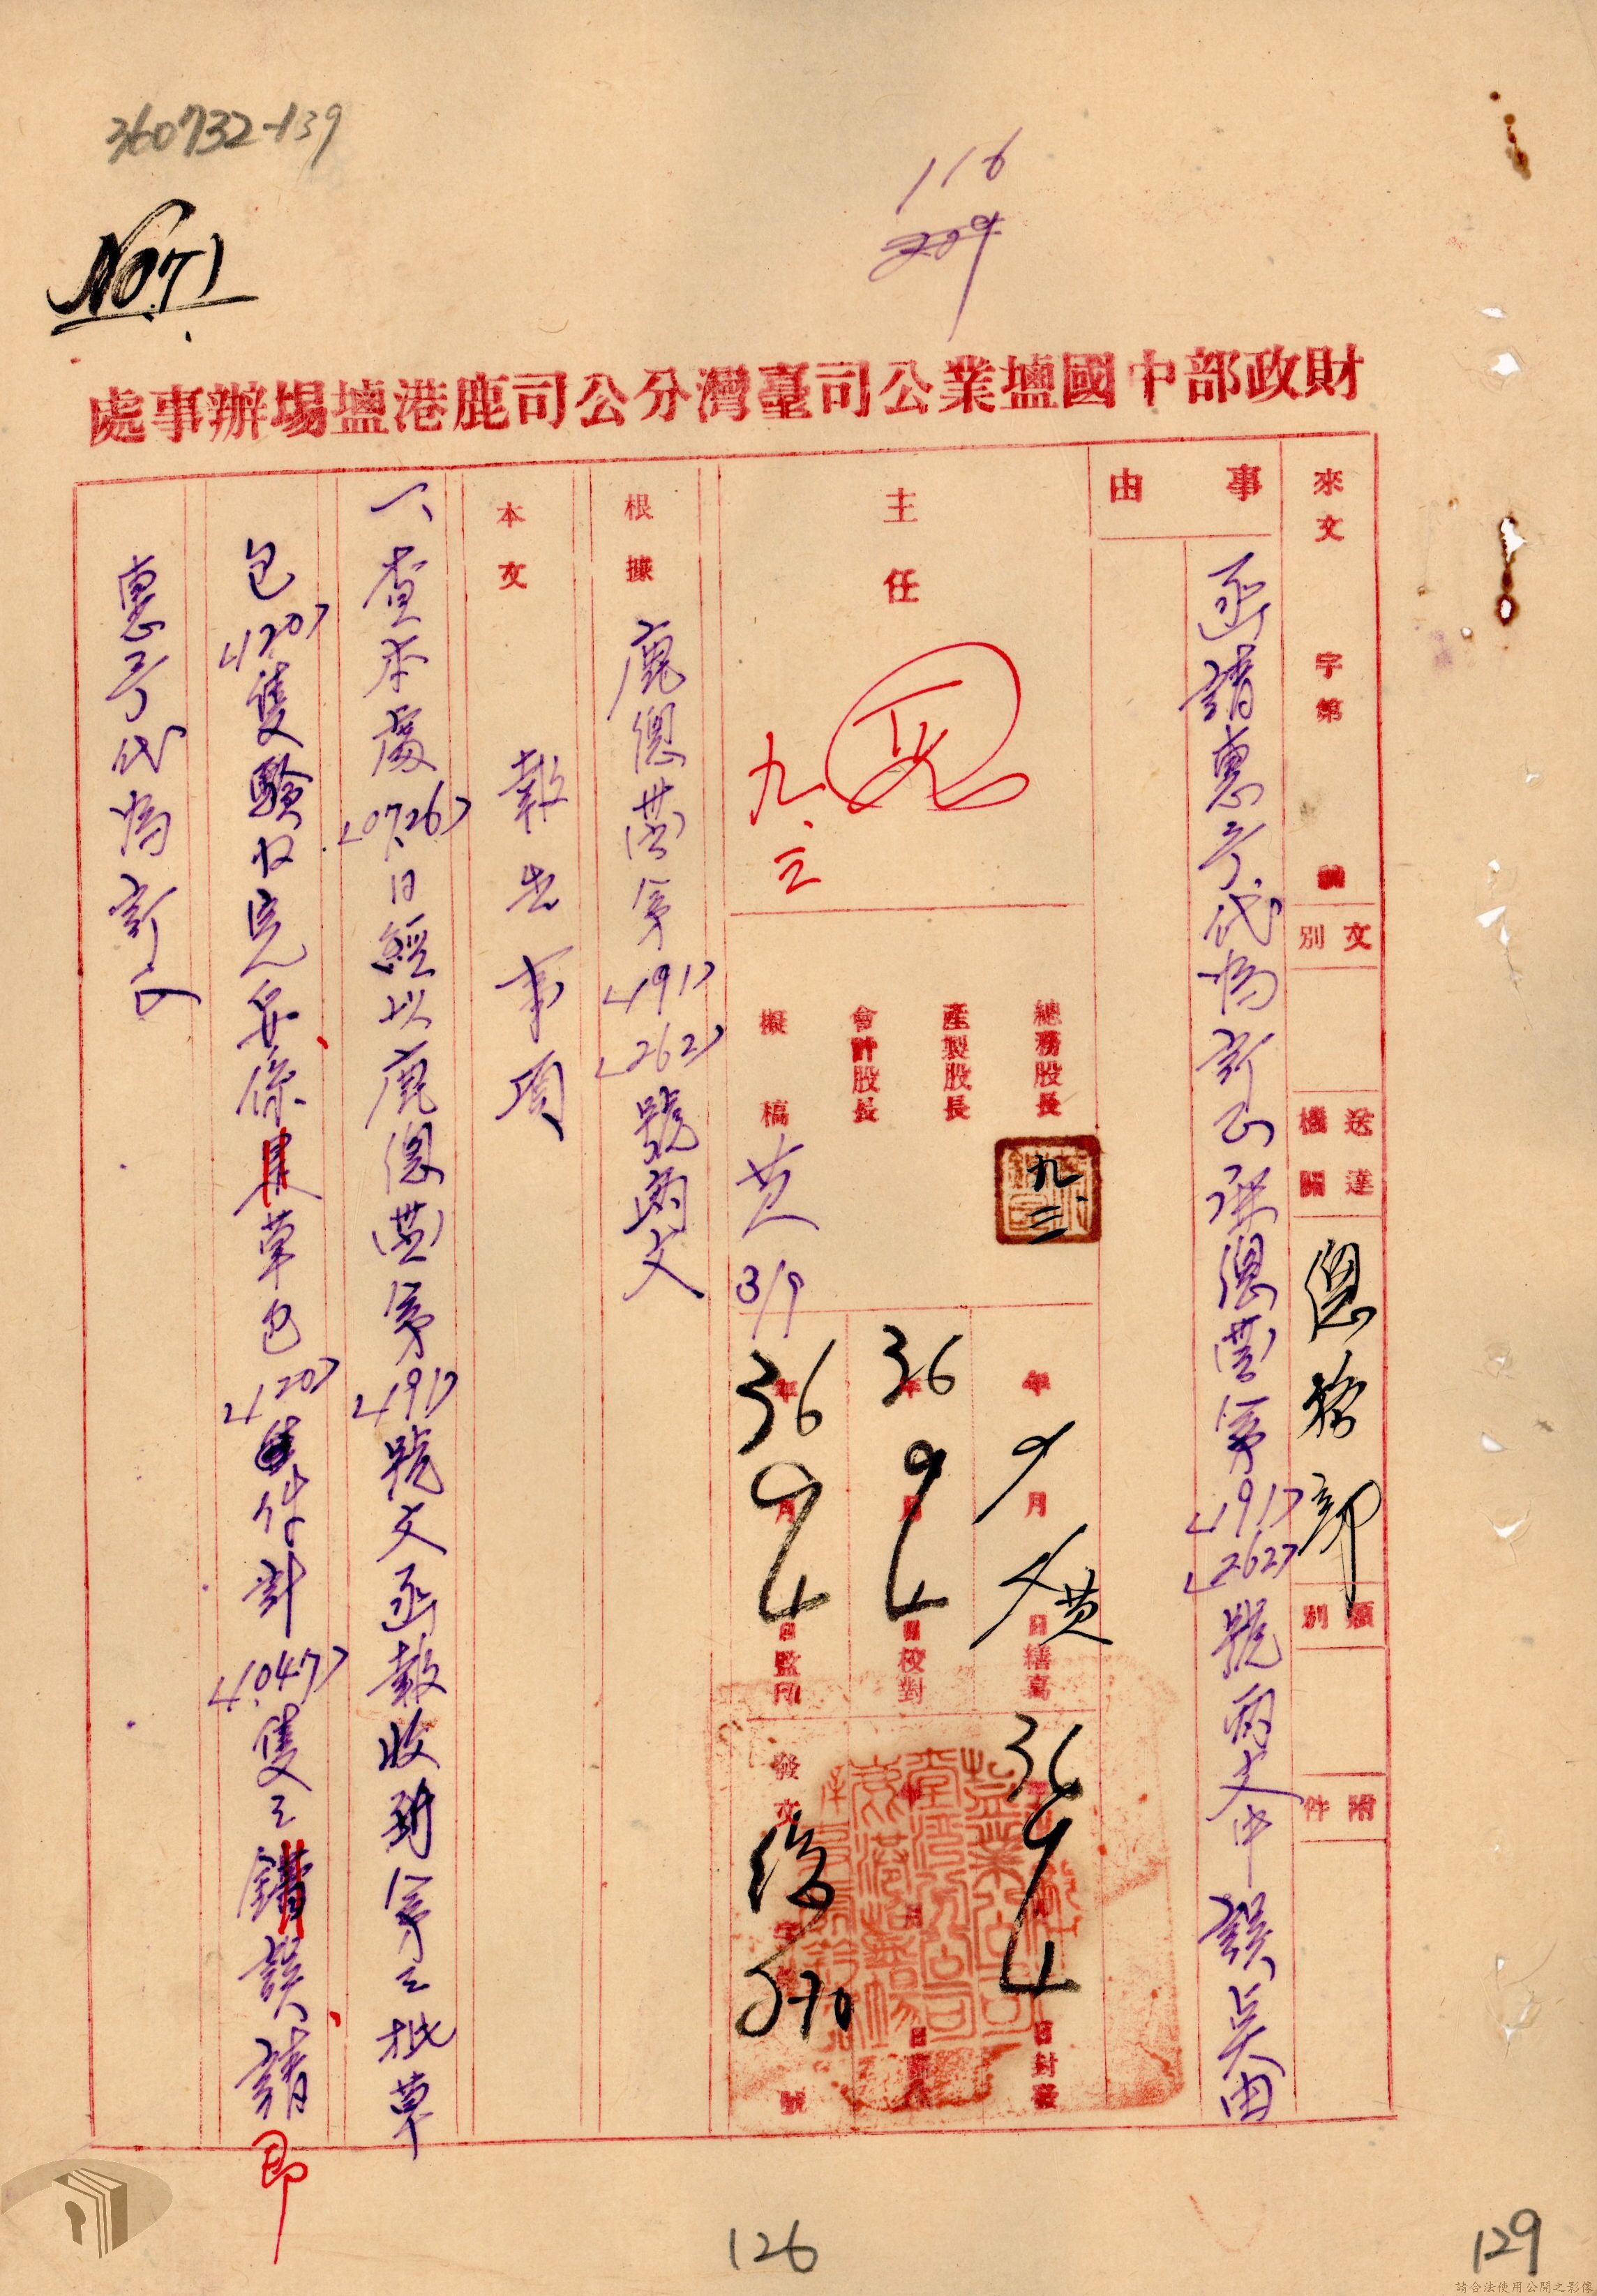 360732-139
116
209
No71
財政部中國鹽業公司臺灣分公司鹿港鹽場辦事處
來文 字第 號
文別
送達機關 總務部
類別
附件
事由
函請惠予代為訂正鹿總營第<191><262>號兩文中誤吳由
主任
九.三
總務股長
產製股長
會計股長
擬稿 黃 3/9
九.三
年9月4日繕寫 黃
36年9月4日校對
36年9月4日監印
36年9月4日封發
年月日
發文總字第570號
根據 鹿總營第<191><262>號兩文
本文 報告事項
一、查本處<07.26>日經以鹿總營第<191>號文函報收到第三批草
包<120>隻驗收完妥係草包<120>件計<4,047>隻之誤請即
惠予代為訂正
126
129
請合法使用公開之影像